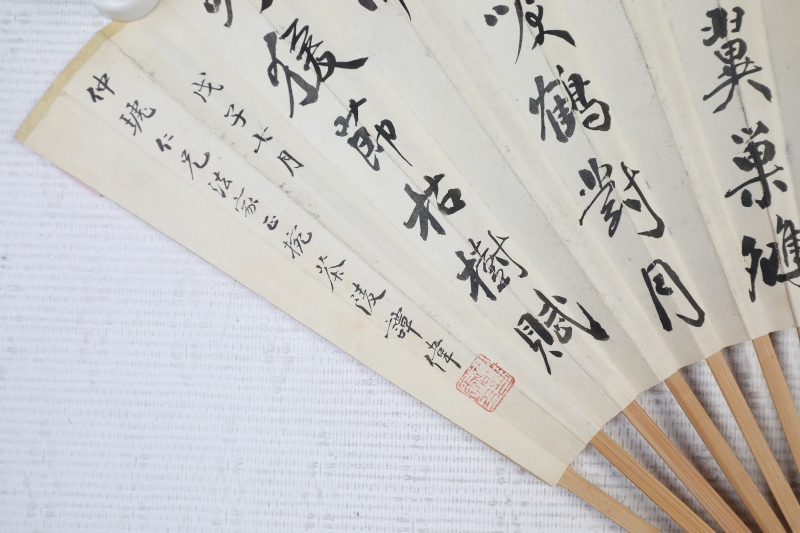 翼巢縫
唳鶴對月
猨節枯樹賦
戊子七月
仲號仁兄法家正捥茶陵譚偉